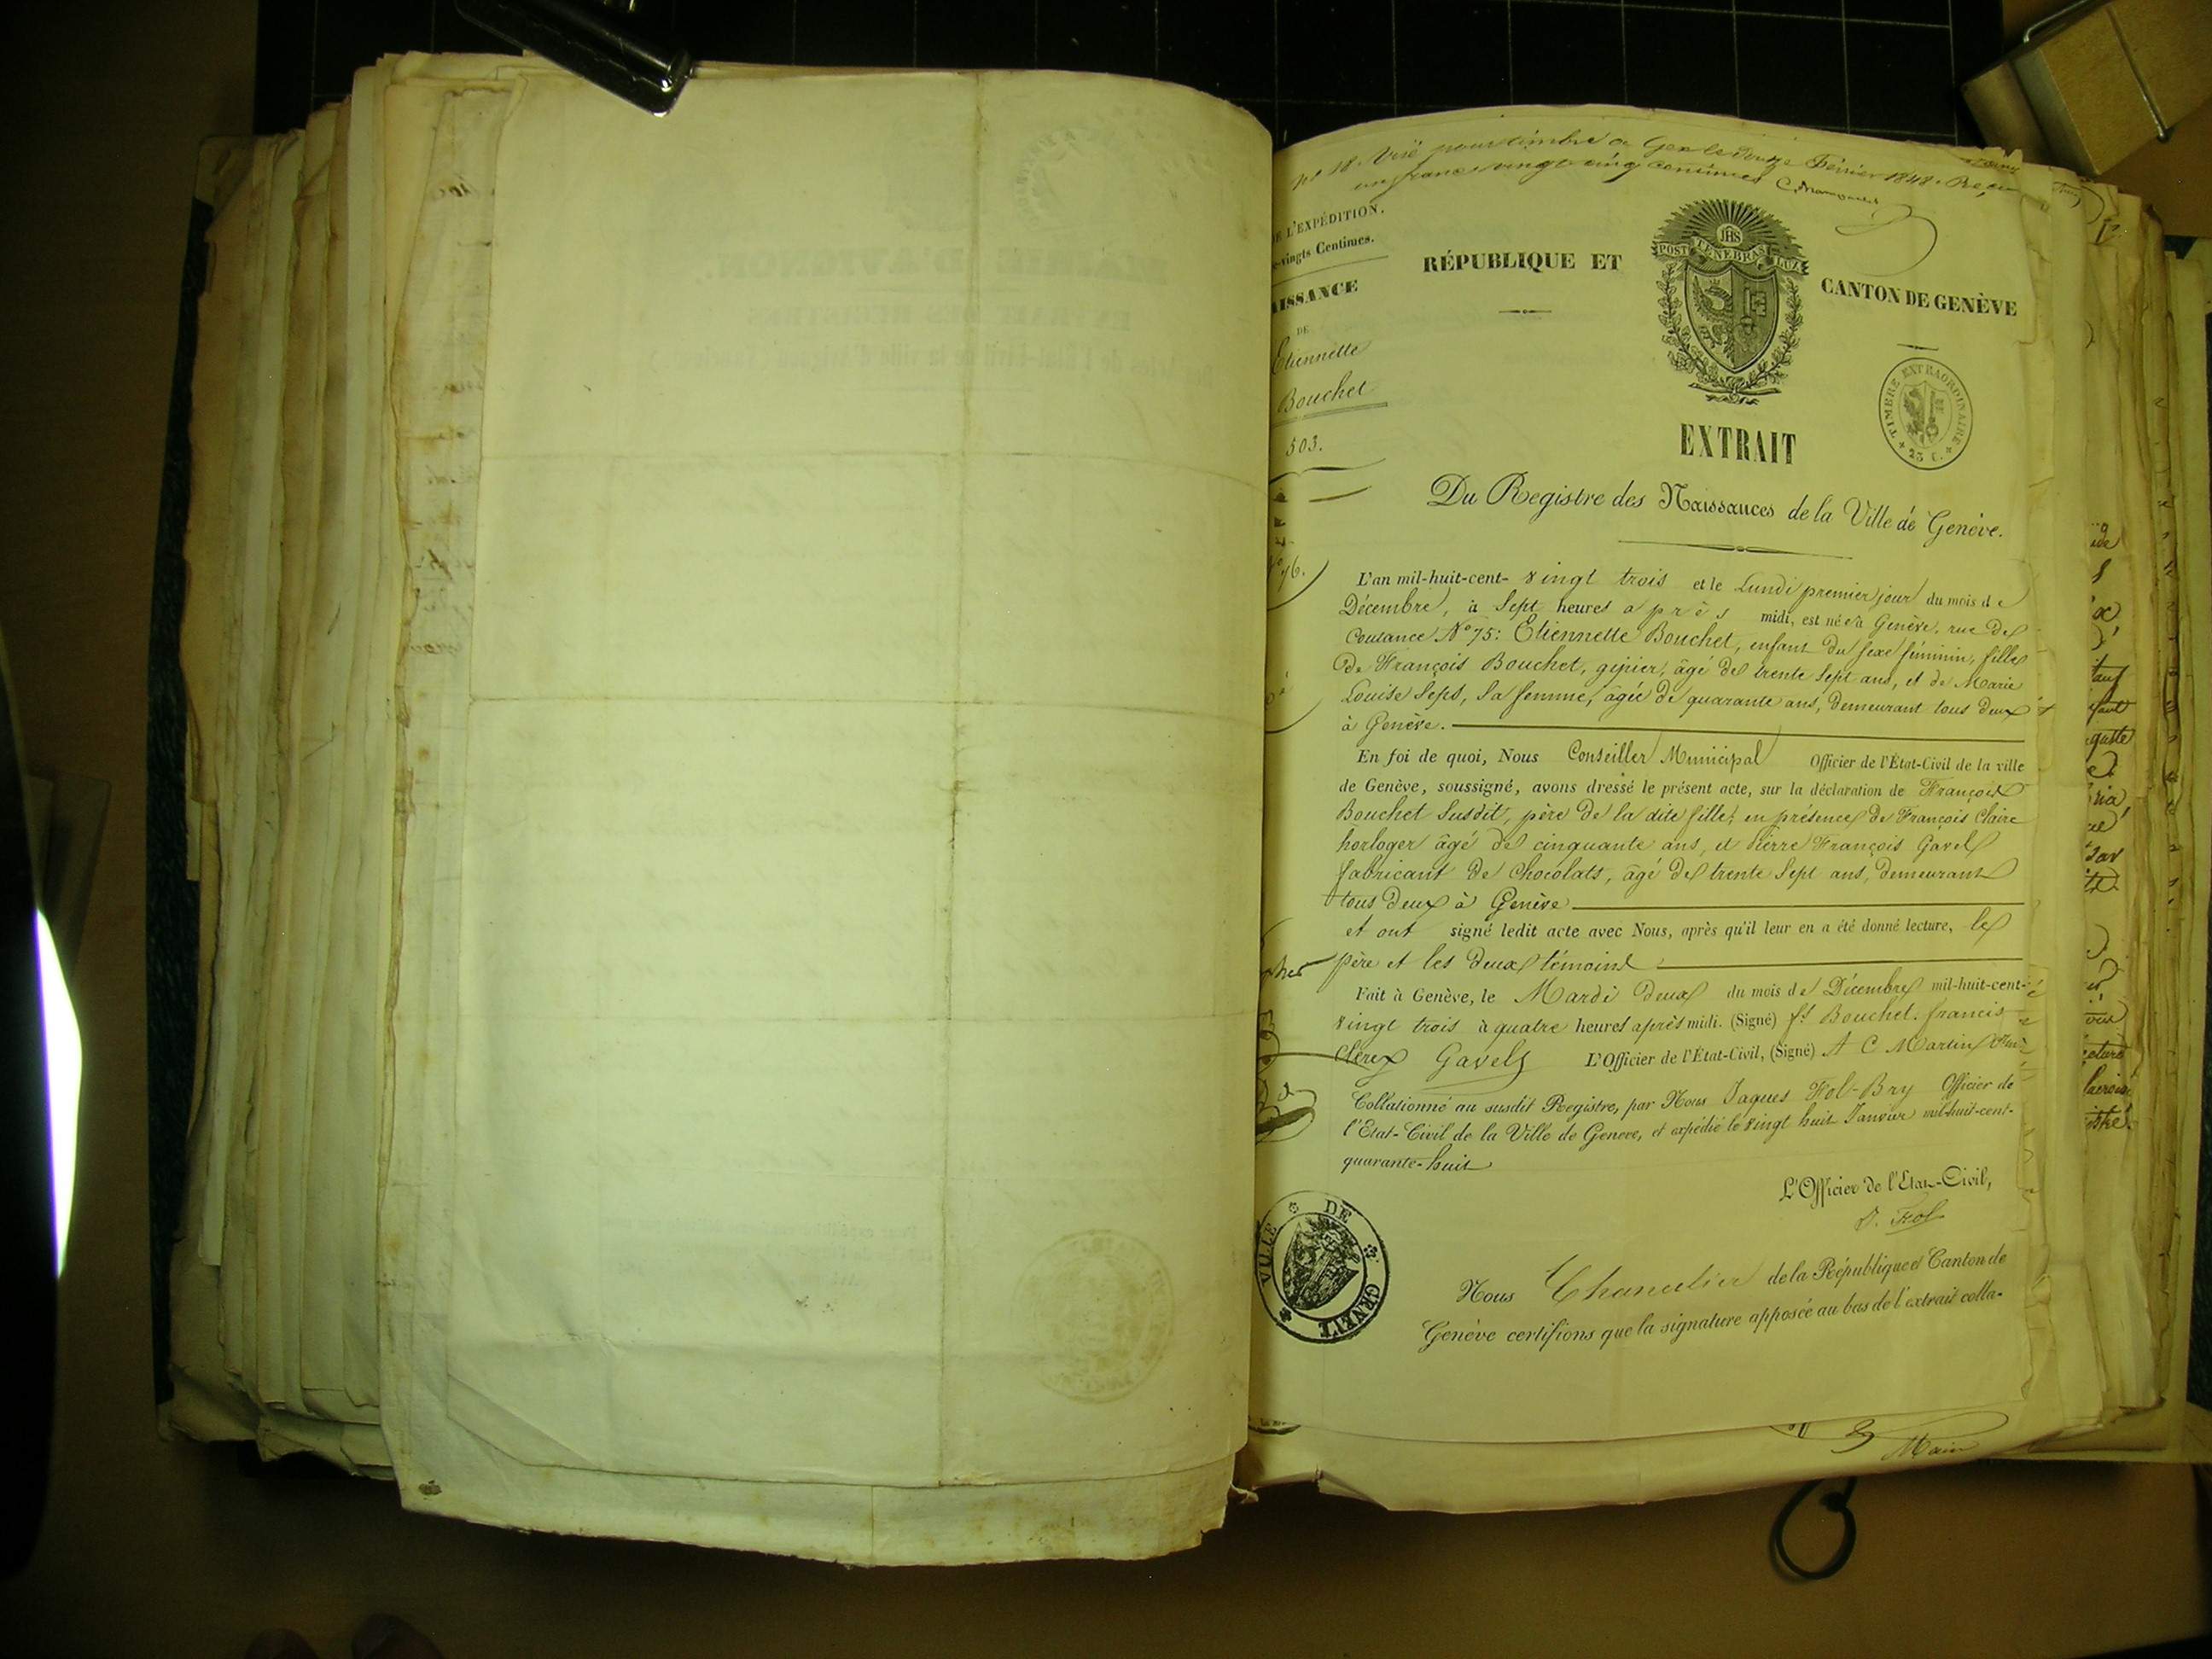 No 18. Visé pour timbre à Gex le douze Février 1848. Reçu
un franc vingt cinq centimes
DE L'EXPÉDITION.
-vingts Centimes.
AISSANCE
DE
Etiennette
Bouchet
503.
RÉPUBLIQUE ET
POST TENEBRAS LUX
JHS
CANTON DE GENÈVE
TIMBRE EXTRAORDINAIRE
25 C.
EXTRAIT
Du Registre des Naissances de la Ville de Genève.
L'an mil-huit-cent- vingt trois et le Lundi premier jour du mois de
Décembre, à Sept heures après midi, est née à Genève, rue de
Coutance No 75: Etiennette Bouchet, enfant du sexe féminin, fille
de François Bouchet, gipier, âgé de trente sept ans, et de Marie
Louise Seps, sa femme, âgée de quarante ans, demeurant tous deux
à Genève.
En foi de quoi, Nous Conseiller Municipal Officier de l'État-Civil de la ville
de Genève, soussigné, avons dressé le présent acte, sur la déclaration de François
Bouchet susdit, père de la dite fille; en présence de François Claire
horloger âgé de cinquante ans, et Pierre François Gavel
fabricant de Chocolats, âgé de trente Sept ans, demeurant
tous deux à Genève
et ont signé ledit acte avec Nous, après qu'il leur en a été donné lecture, le
père et les deux témoins
Fait à Genève, le Mardi deux du mois de Décembre mil-huit-cent-
vingt trois à quatre heures après midi. (Signé) fs Bouchet. francis
Clerex Gavel L'Officier de l'État-Civil, (Signé) A C Martin
Collationné au susdit Registre, par Nous Jaques Fol-Bry Officier de
l'Etat-Civil de la Ville de Geneve, et expédié le vingt huit Janvier mil-huit-cent-
quarante-huit
L'Officier de l'Etat-Civil,
J. Fol
VILLE DE GENEVE
Nous Chancelier de la République et Canton de
Genève certifions que la signature apposée au bas de l'extrait colla-